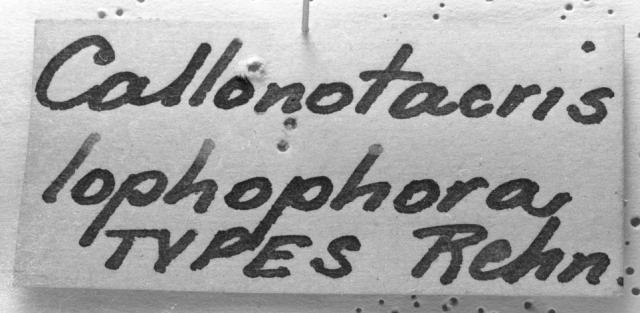 Callonotacris
lophophora
TYPES Rehn.